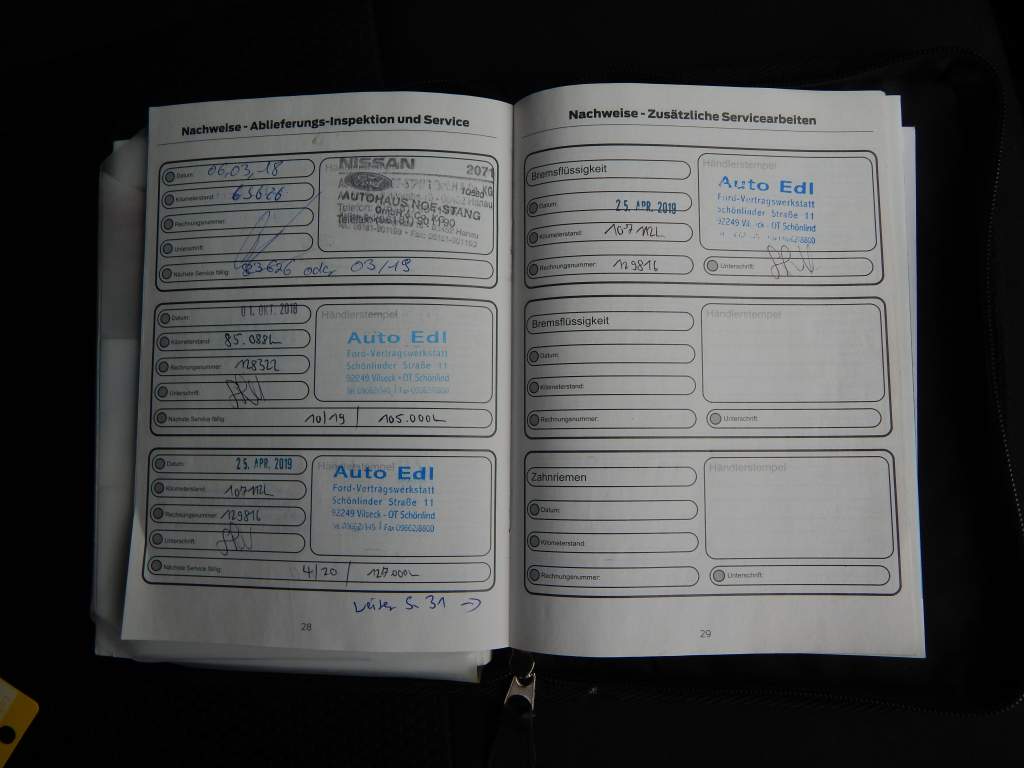 Nachweise - Ablieferungs-Inspektion und Service
Datum: 06.03.-18
Kilometerstand: 63626
Rechnungsnummer:
Unterschrift:
Nächste Service fällig: 83626 oder 03/19
NISSAN 2071
AUTOHAUS NOE-STANG
Datum: 01. OKT. 2018
Kilometerstand: 85.088
Rechnungsnummer: 128322
Unterschrift:
Nächste Service fällig: 10/19 105.000
Händlerstempel
Auto Edl
Ford-Vertragswerkstatt
Schönlinder Straße 11
92249 Vilseck · OT Schönlind
Datum: 25. APR. 2019
Kilometerstand:
Rechnungsnummer: 129816
Unterschrift:
Nächste Service fällig: 4/20 127.000
Händlerstempel
Auto Edl
Ford-Vertragswerkstatt
Schönlinder Straße 11
92249 Vilseck · OT Schönlind
Fax 09662/8800
S. 31 →
28
Nachweise - Zusätzliche Servicearbeiten
Bremsflüssigkeit
Datum: 25. APR. 2019
Kilometerstand:
Rechnungsnummer: 129816
Händlerstempel
Auto Edl
Ford-Vertragswerkstatt
Schönlinder Straße 11
92249 Vilseck · OT Schönlind
Unterschrift:
Bremsflüssigkeit
Datum:
Kilometerstand:
Rechnungsnummer:
Händlerstempel
Unterschrift:
Zahnriemen
Datum:
Kilometerstand:
Rechnungsnummer:
Händlerstempel
Unterschrift:
29